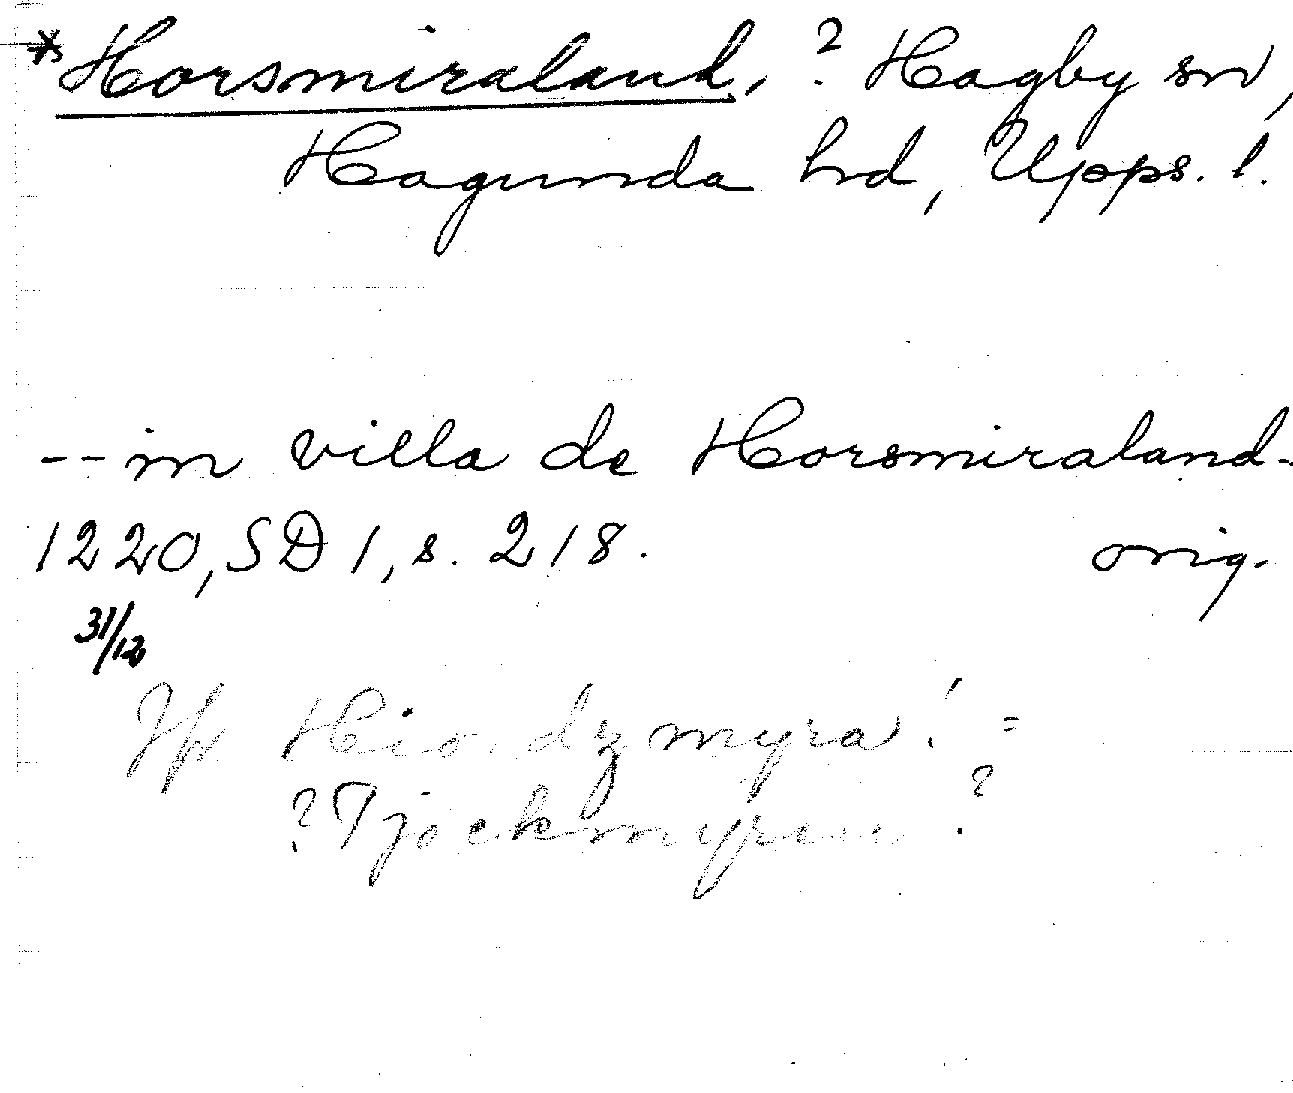 *Horsmiraland, ? Hagby sn,
Hagunda hd, Upps. l.
-- in villa de Horsmiraland -
1220, SD 1, s. 218. orig.
31/12
Jfr Hio.dzmyra! =
? Tjockmyren ?